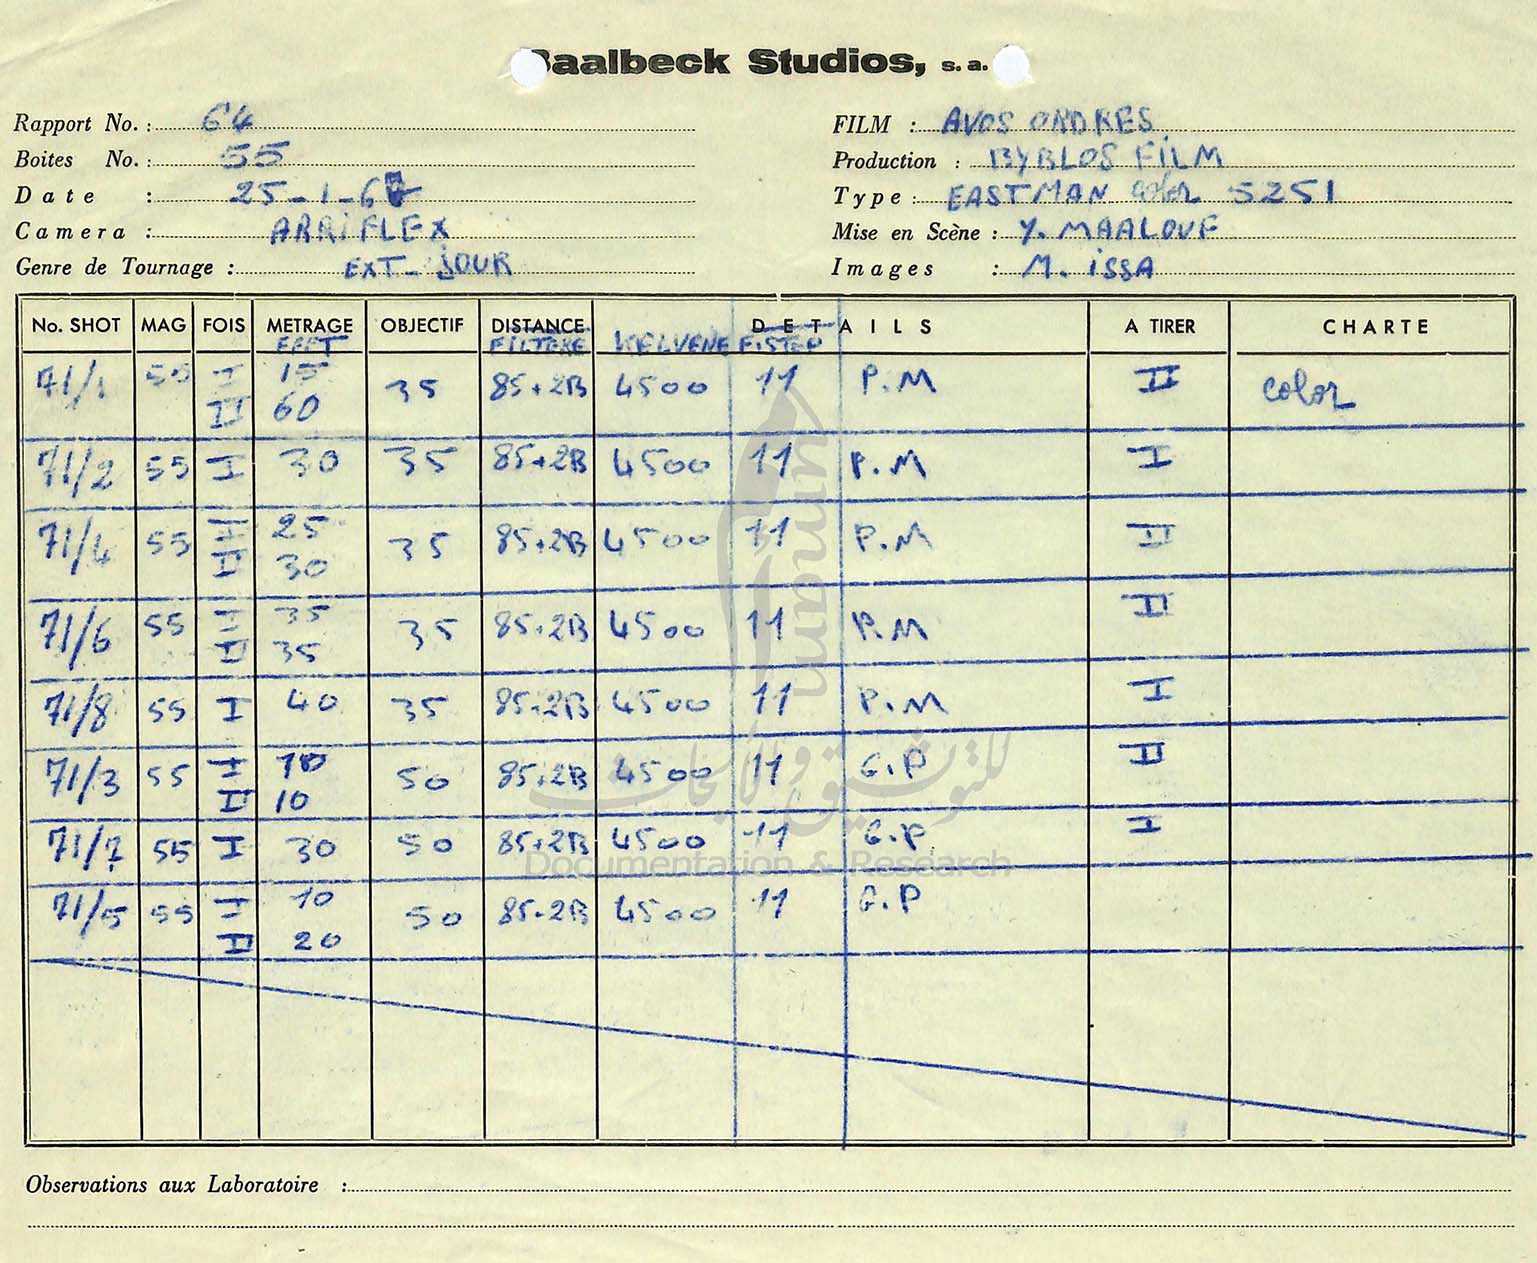 Baalbeck Studios, s. a.
Rapport No. : 64
Boites No. : 55
Date : 25-1-67
Camera : ARRIFLEX
Genre de Tournage : EXT- JOUR
FILM : AVOS ORDRES
Production : BYBLOS FILM
Type : EASTMAN COLOR 5251
Mise en Scène : Y. MAALOUF
Images : M. ISSA
No. SHOT MAG FOIS METRAGE OBJECTIF DISTANCE DETAILS A TIRER CHARTE
FILTERE KELVENE F.STEP
71/1 55 I 15 35 85+2B 4500 11 P.M II color
II 60
71/2 55 I 30 35 85+2B 4500 11 P.M I
71/4 55 I 25 35 85+2B 4500 11 P.M II
II 30
71/6 55 I 35 35 85+2B 4500 11 P.M II
II 35
71/8 55 I 40 35 85+2B 4500 11 P.M I
71/3 55 I 10 50 85+2B 4500 11 G.P II
II 10
71/7 55 I 30 50 85+2B 4500 11 G.P I
71/5 55 I 10 50 85+2B 4500 11 G.P
II 20
Observations aux Laboratoire :
umam
للتوثيق والأبحاث
Documentation & Research